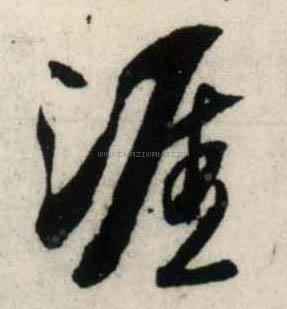 涯
WWW.CHAZIWANG.COM